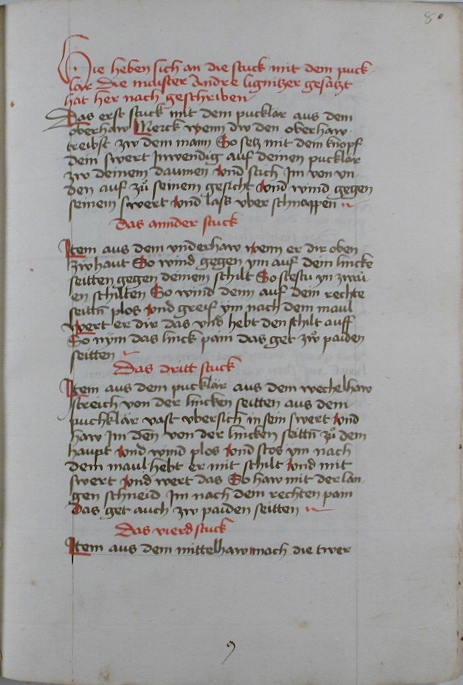 80
Hie heben sich an die stuck mit dem puck
lar Die maister Andre ligniczer gesaczt
hat her nach geschriben
Das erst stuck mit dem pucklar aus dem
oberhaw Merck wenn dw den oberhaw
treibst zw dem mann So secz mit dem knopf
dein swert Inwendig auf deinen pucklar
zw deinem daumen Vnd stich im von vn
den auf zů seinem gesicht Vnd wind gegen
seinem swert Vnd lass vber schnappen
Das annder stuck
Item aus dem vnderhaw wenn er dir oben
zw haut So wind gegen ym auf dein lincke
seitten gegen deinem schilt So stestu yn zwaī
en schilten So wind denn auf dein rechte
seittñ plos Vnd greif ym nach dem maul
Wert er dir das vnd hebt den schilt auff
So nym das linck pain das get zw paiden
seitten
Das dritt stuck
Item aus dem pucklar aus dem wechelhaw
streich von der lincken seitten aus dem
puchklär vast vbersich in sein swert Vnd
haw im den von der lincken seittñ zů dem
haupt Vnd wind plos Vnd stos ym nach
dem maul hebt er mit schilt Vnd mit
swert Vnd wert das So haw mit der lan
gen schneid Im nach dem rechten pain
Das get auch zw paiden seitten
Das vierd stuck
Item aus dem mittelhaw mach die twer